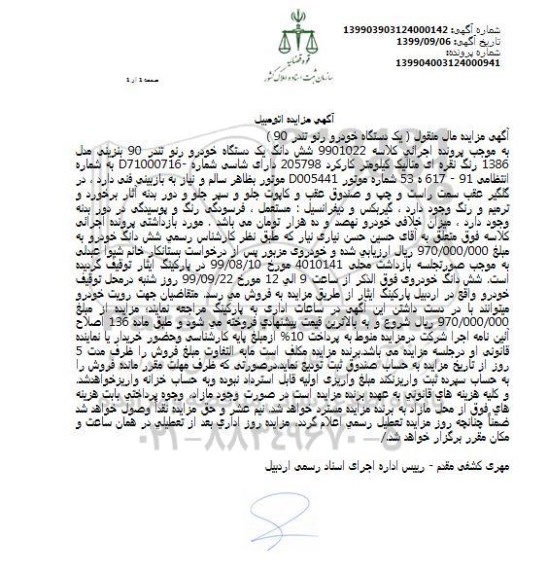 شماره آگهی: 139903903124000142
تاریخ آگهی: 1399/09/06
شماره پرونده:
139904003124000941
قوه قضائیه
سازمان ثبت اسناد و املاک کشور
صفحه 1 از 1
آگهی مزایده اتومبیل
آگهی مزایده مال منقول ( یک دستگاه خودرو رنو تندر 90 )
به موجب پرونده اجرائی کلاسه 9901022 شش دانگ یک دستگاه خودرو رنو تندر 90 بنزینی مدل
1386 رنگ نقره ای متالیک کیلومتر کارکرد 205798 دارای شاسی شماره -D71000716 به شماره
انتظامی 91 - 617 ه 53 شماره موتور D005441 موتور بظاهر سالم و نیاز به بازبینی فنی دارد ، در
گلگیر عقب سمت راست و چپ و صندوق عقب و کاپوت جلو و سپر جلو و دور بدنه آثار برخورد و
ترمیم و رنگ وجود دارد ، گیربکس و دیفرانسیل : مستعمل ، فرسودگی رنگ و پوسیدگی در دور بدنه
وجود دارد ، میزان خلافی خودرو نهصد و ده هزار تومان می باشد . مورد بازداشتی پرونده اجرائی
کلاسه فوق متعلق به آقای حسین حسن نیاری نیار که طبق نظر کارشناس رسمی شش دانگ خودرو به
مبلغ 970/000/000 ریال ارزیابی شده و خودروی مزبور پس از درخواست بستانکار خانم شیوا عبدلی
به موجب صورتجلسه بازداشت محلی 4010141 مورخ 99/08/10 در پارکینگ ایثار توقیف گردیده
است. شش دانگ خودروی فوق الذکر از ساعت 9 الی 12 مورخ 99/09/22 روز شنبه درمحل توقیف
خودرو واقع در اردبیل پارکینگ ایثار از طریق مزایده به فروش می رسد. متقاضیان جهت رویت خودرو
میتوانند با در دست داشتن این آگهی در ساعات اداری به پارکینگ مراجعه نمایند. مزایده از مبلغ
970/000/000 ریال شروع و به بالاترین قیمت پیشنهادی فروخته می شود و طبق ماده 136 اصلاح
آئین نامه اجرا شرکت درمزایده منوط به پرداخت 10% ازمبلغ پایه کارشناسی وحضور خریدار یا نماینده
قانونی او درجلسه مزایده می باشد.برنده مزایده مکلف است مابه التفاوت مبلغ فروش را ظرف مدت 5
روز از تاریخ مزایده به حساب صندوق ثبت تودیع نماید.درصورتی که ظرف مهلت مقرر مانده فروش را
به حساب سپرده ثبت واریزنکند مبلغ واریزی اولیه قابل استرداد نبوده وبه حساب خزانه واریزخواهدشد.
و کلیه هزینه های قانونی به عهده برنده مزایده است در صورت وجود مازاد، وجوه پرداختی بابت هزینه
های فوق از محل مازاد به برنده مزایده مسترد خواهد شد. نیم عشر و حق مزایده نقداً وصول خواهد شد
ضمناً چنانچه روز مزایده تعطیل رسمی اعلام گردد، مزایده روز اداری بعد از تعطیلی در همان ساعت و
مکان مقرر برگزار خواهد شد./
مهری کشفی مقدم - رییس اداره اجرای اسناد رسمی اردبیل
۰۲۱-۸۸۳۴۹۶۷۰-۵